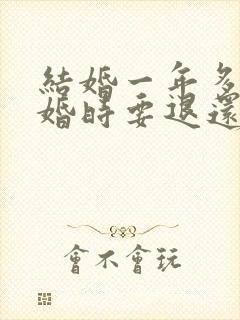 結婚一年多
婚時要退還
會不會玩